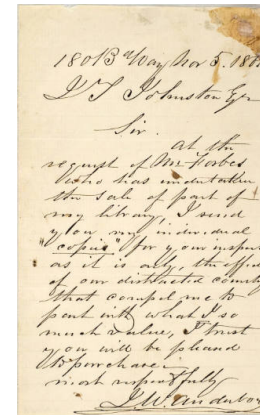 180 B'Way Nov 5. 186
J T Johnston Eqr
Sir.
At the
request of Mr Forbes
who has undertaken
the sale of part of
my library, I send
you my individual
"copies" for your inspec
as it is only, the effect
of our distracted county
that compel me to
part with what I so
much value, I trust
you will be pleased
to purchase
most respectfully
J. W.